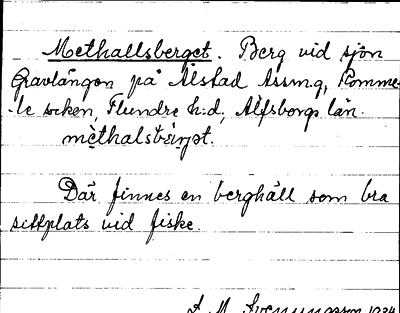 Methallsberget. Berg vid sjön
Gravlången på Ålstad Assmg, Romme-
le socken, Flundre h:d, Älfsborgs län.
mèthalsbärjet.
Där finnes en berghäll som bra
sittplats vid fiske.
A. M. Svenungsson 1934